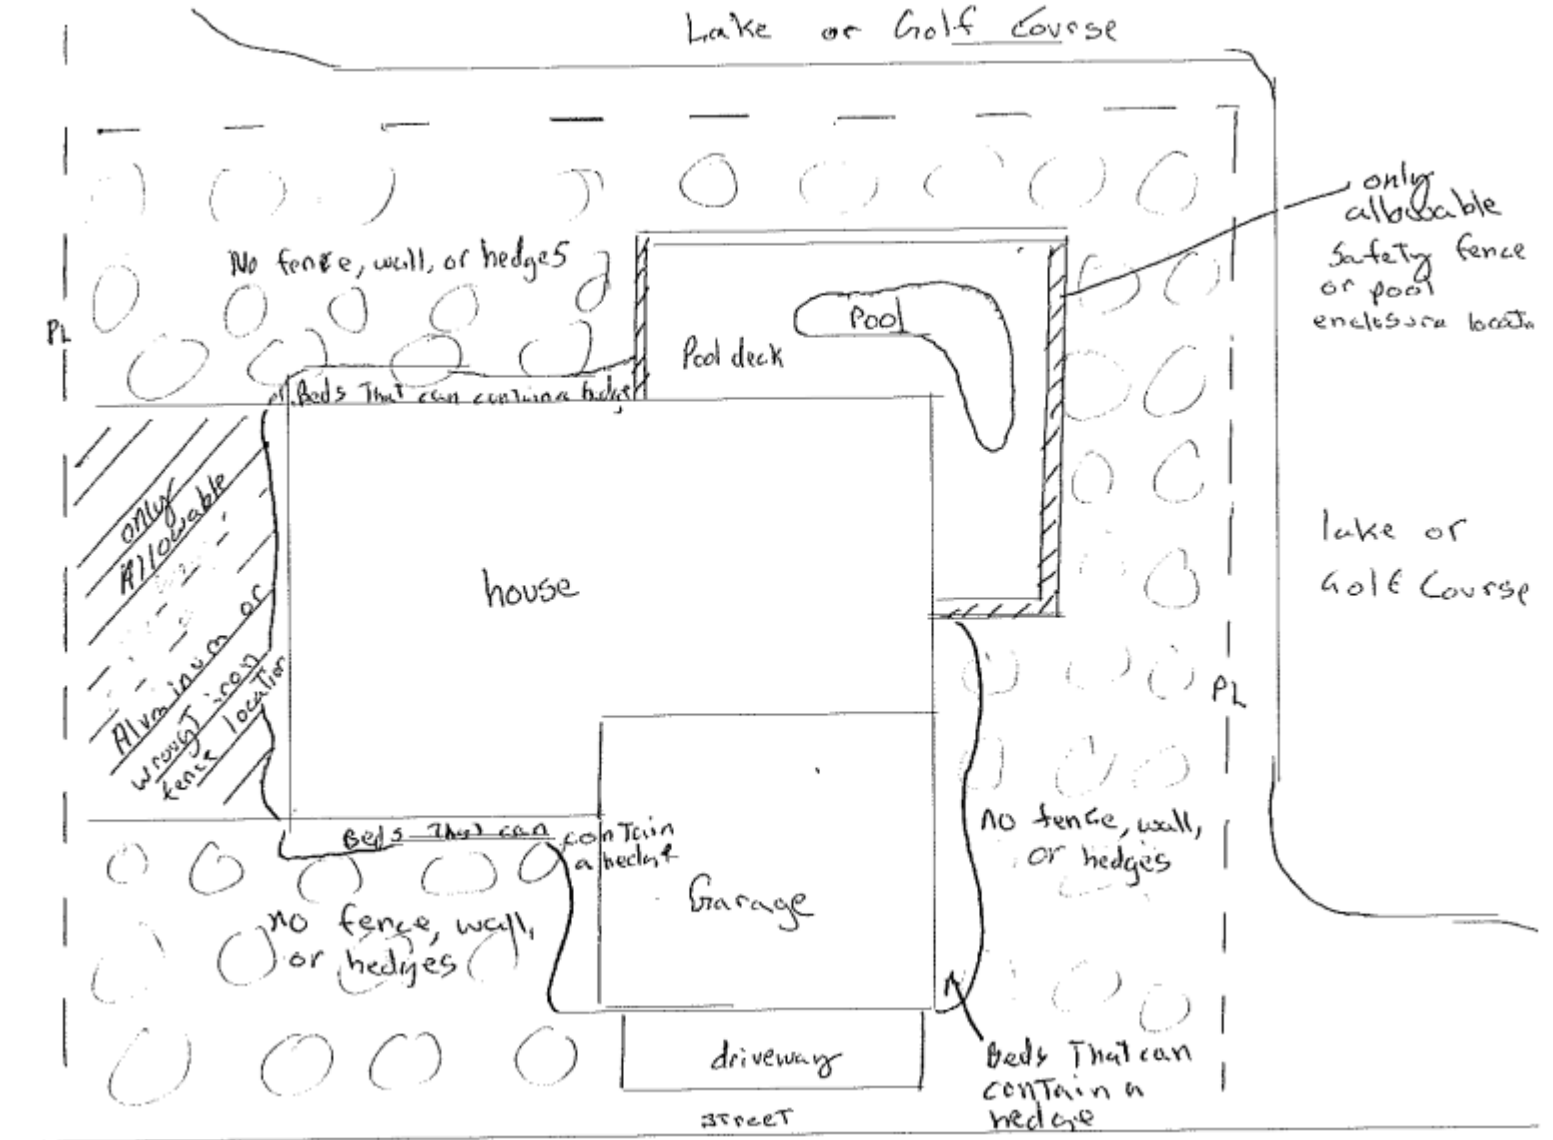 Lake or Golf Course
only
allowable
safety fence
or pool
enclosure locatn
No fence, wall, or hedges
PL
Pool
Pool deck
or Beds That can contain a hedge
only
Allowable
Aluminum or
wrought iron
fence location
house
lake or
Golf Course
PL
Beds That can contain
a hedge
no fence, wall,
or hedges
Garage
no fence, wall,
or hedges
driveway
Beds That can
contain a
hedge
street